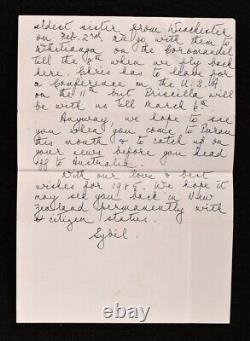 eldest sister from Winchester
on Feb. 23rd. We go with them to
Whitianga on the Coromandel
till the 8th when we fly back
here. Chris has to leave for
a Conference in the U.S.A
on the 11th but Priscilla will
be with us till March 6th
Anyway, we hope to see
you when you come to
this month & to catch up on
your news before you head
off to Australia.
With our love & best
wishes for 19 We hope it
may see you back in New
Zealand permanently with
citizen status.
Sybil.
ebay